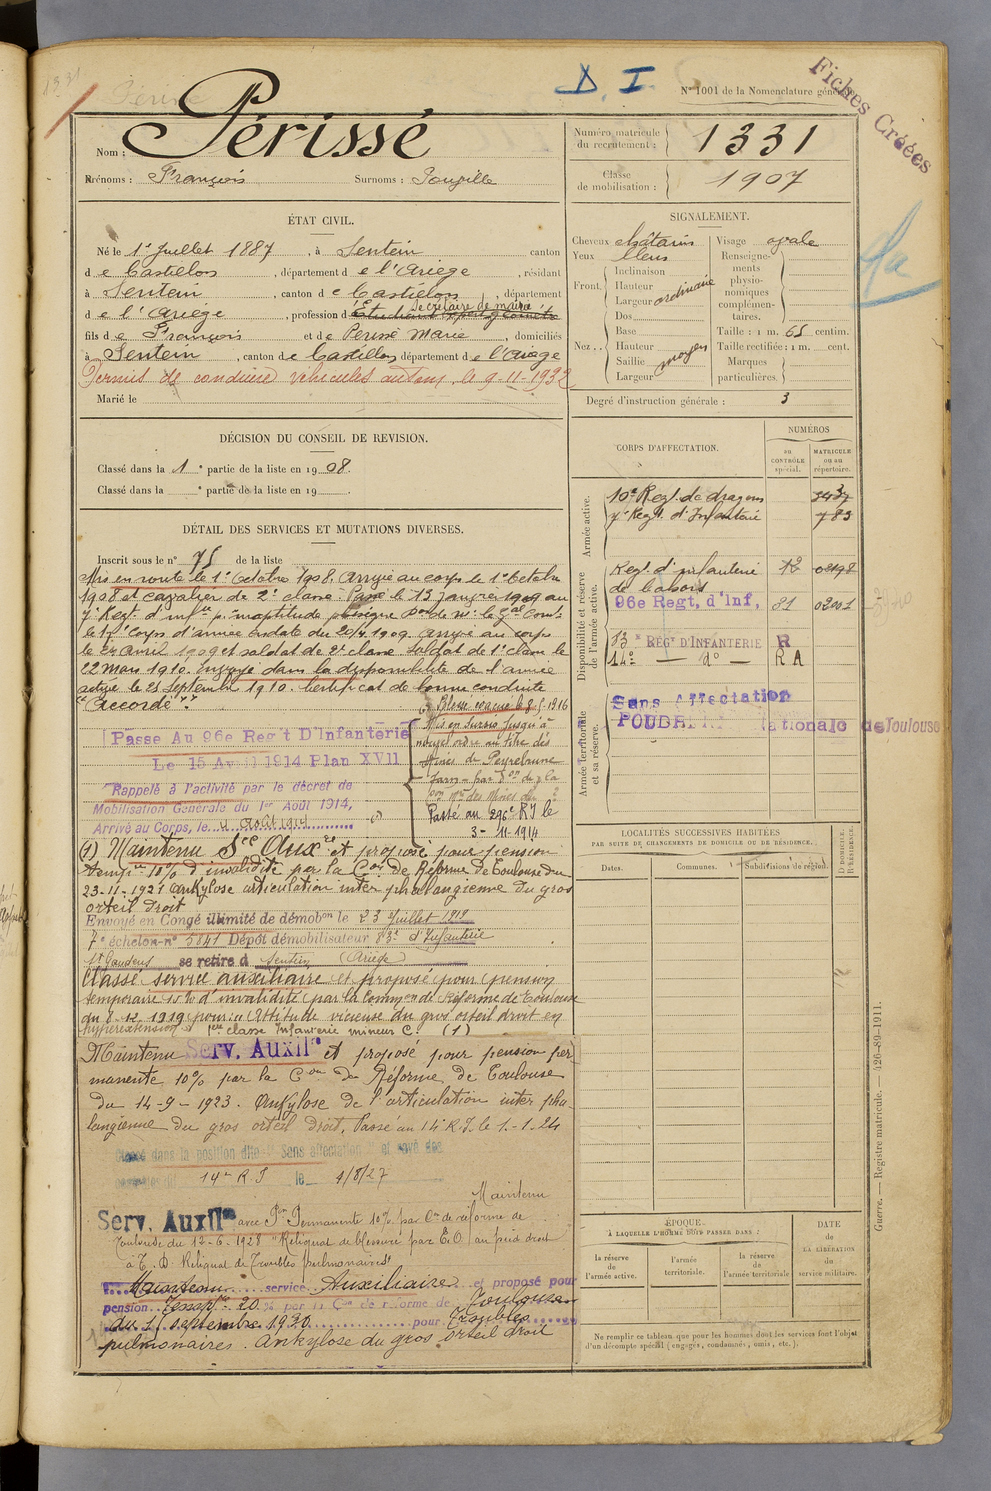 1331
D. I.
N° 1001 de la Nomenclature
Fiches Créées
Nom : Périssé
Prénoms : François Surnoms :
Numéro matricule du recrutement : 1331
Classe de mobilisation : 1907
ÉTAT CIVIL.
Né le 1er Juillet 1887, à Sentein canton
de Castillon, département de l'Ariège, résidant
à Sentein, canton de Castillon, département
de l'Ariège, profession d Secrétaire de mairie
fils de François et de Périssé Marie, domiciliés
à Sentein, canton de Castillon département de l'Ariège
Permis de conduire véhicules autom. le 9-11-1932
Marié le
SIGNALEMENT.
Cheveux châtains
Yeux bleus
Front. Inclinaison
Hauteur
Largeur ordinaire
Nez .. Dos
Base
Hauteur
Saillie moyen
Largeur
Visage ovale
Renseignements physionomiques complémentaires.
Taille : 1 m. 65 centim.
Taille rectifiée : 1 m. cent.
Marques particulières.
Degré d'instruction générale : 3
DÉCISION DU CONSEIL DE REVISION.
Classé dans la 1e partie de la liste en 1908.
Classé dans la e partie de la liste en 19 .
DÉTAIL DES SERVICES ET MUTATIONS DIVERSES.
Inscrit sous le n° 75 de la liste
Mis en route le 1er Octobre 1908. Arrivé au corps le 1er Octobre
1908 et cavalier de 2e classe. Passé le 13 janvier 1909 au
7e Regt. d'infie pr inaptitude physique
le 17e Corps d'armée en date du 20/4 1909. Arrivé au corps
le 24 Avril 1909 et soldat de 2e classe. Soldat de 1e classe le
22 Mars 1910. Envoyé dans la disponibilité de l'armée
active le 25 Septembre 1910. Certificat de bonne conduite
"Accordé".
Passé Au 96e Reg't D'Infanterie
Le 15 Avril 1914 Plan XVII
Rappelé à l'activité par le décret de
Mobilisation Générale du 1er Août 1914,
Arrivé au Corps, le 4 Août 1914
Mis en Sursis jusqu'à
nouvel ordre au titre des
Mines de Peyrebrune
Tarn
Passé au 296e RI le
3-11-1914
(1) Maintenu Sce Auxre et proposé pour pension
tempre 10% d'invalidité par la Con de Réforme de Toulouse du
23-11-1921 ankylose articulation inter phalangienne du gros
orteil droit
Envoyé en Congé illimité de démobon le 23 Juillet 1919
7e échelon-n° 5841 Dépôt démobilisateur 83e d'Infanterie
St Gaudens se retire à Sentein (Ariège)
Classé service auxiliaire et proposé pour pension
temporaire 15% d'invalidité par la Common de Réforme de Toulouse
pour : Attitude vicieuse du gros orteil droit en
hyperextension 1ère classe Infanterie mineur C. (1)
Maintenu Serv. Auxilre et proposé pour pension per
manente 10% par la Con de Réforme de Toulouse
du 14-9-1923. Ankylose de l'articulation inter pha
langienne du gros orteil droit. Passé au 14e R.I. le 1-1-24
Classé dans la position dite "Sans affectation" et rayé des
contrôles du 14e R I le 4/8/27
Maintenu
Serv. Auxilre avec Pon Permanente 10% par Con de réforme de
Toulouse du 12-6-1928 "Reliquat de blessure par E.O. au pied droit
à T. D. Reliquat de troubles pulmonaires"
Maintenu service Auxiliaire et proposé pour
pension Tempre 20 % par la Con de réforme de Toulouse
septembre 1920 pour Troubles
pulmonaires. Ankylose du gros orteil droit
CORPS D'AFFECTATION.
NUMÉROS
au CONTRÔLE spécial.
MATRICULE ou au répertoire.
Armée active.
10e Regt. de dragons
7e Regt. d'Infanterie 783
Disponibilité et réserve de l'armée active.
Regt. d'infanterie
de Cahors
96e Regt, d'Inf, 31 02001
83e REGt D'INFANTERIE R
14e — d° — R A
Armée territoriale et sa réserve.
Sans Affectation
POUDRERIE Nationale de Toulouse
LOCALITÉS SUCCESSIVES HABITÉES
PAR SUITE DE CHANGEMENTS DE DOMICILE OU DE RÉSIDENCE.
Dates. Communes. Subdivisions de région. D. DOMICILE. R. RÉSIDENCE.
ÉPOQUE.
À LAQUELLE L'HOMME DOIT PASSER DANS :
la réserve de l'armée active.
l'armée territoriale.
la réserve de l'armée territoriale
DATE de LA LIBÉRATION du service militaire.
Ne remplir ce tableau que pour les hommes dont les services font l'objet
d'un décompte spécial (engagés, condamnés, omis, etc.).
Guerre. — Registre matricule. — 426-89-1911.